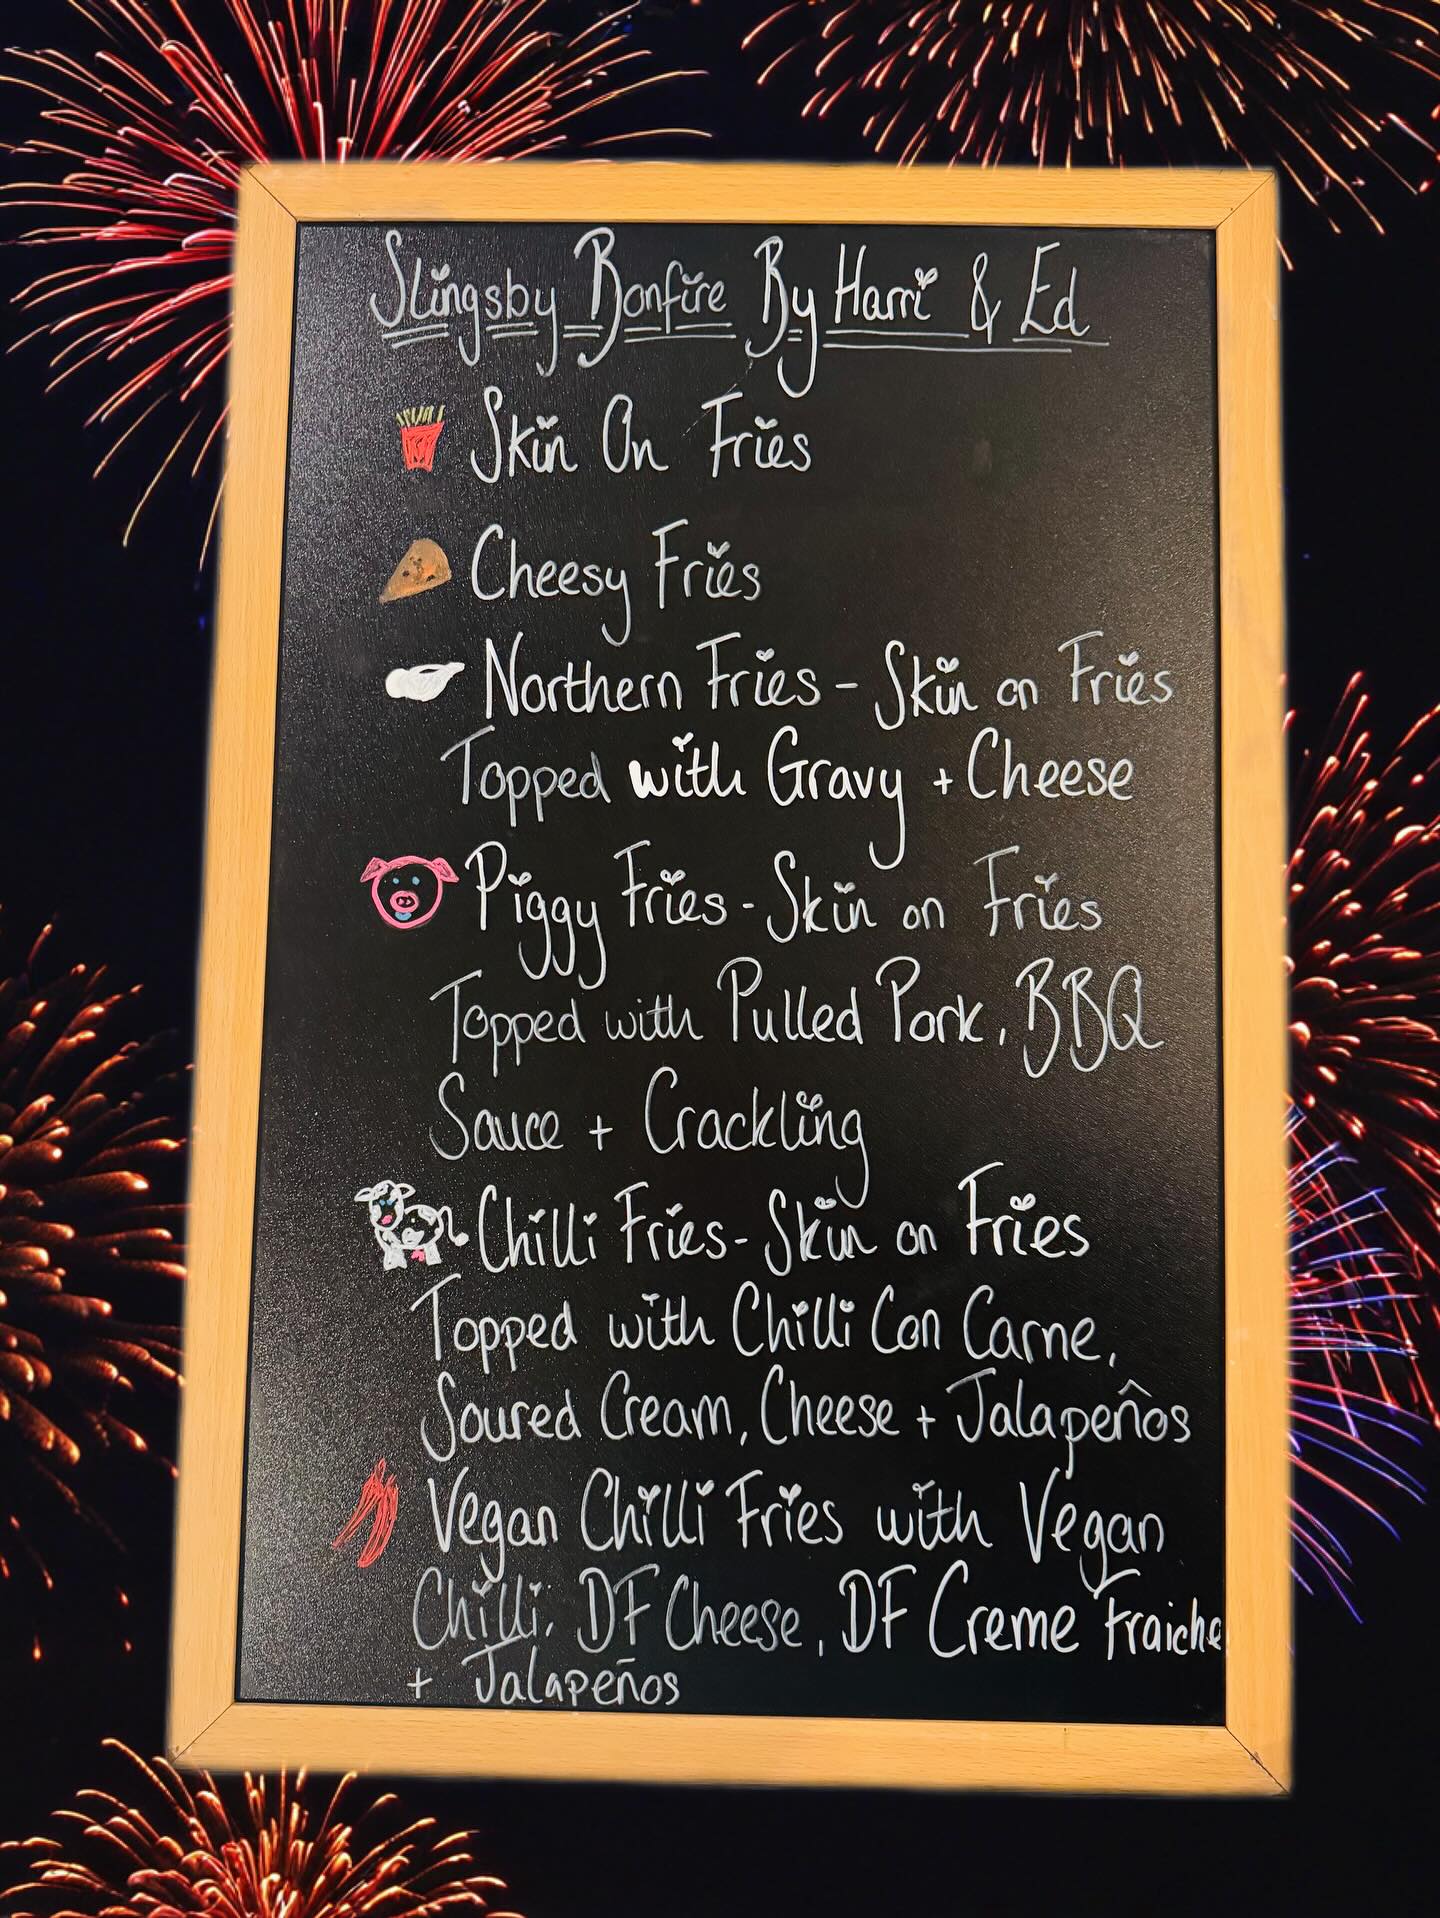 Slingsby Bonfire By Harri & Ed
Skin On Fries
Cheesy Fries
Northern Fries - Skin on Fries
Topped with Gravy + Cheese
Piggy Fries - Skin on Fries
Topped with Pulled Pork, BBQ
Sauce + Crackling
Chilli Fries - Skin on Fries
Topped with Chilli Con Carne,
Soured Cream, Cheese + Jalapeños
Vegan Chilli Fries with Vegan
Chilli, DF Cheese, DF Creme Fraiche
+ Jalapeños